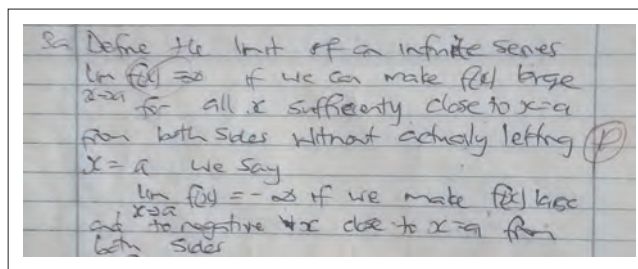 3a Define the limit of an infinite series
lim f(x) = ∞ if we can make f(x) large
x→a for all x sufficiently close to x=a
from both sides without actually letting
x = a we say
lim f(x) = -∞ if we make f(x) large
x→a
and to negative x close to x=a from
both sides